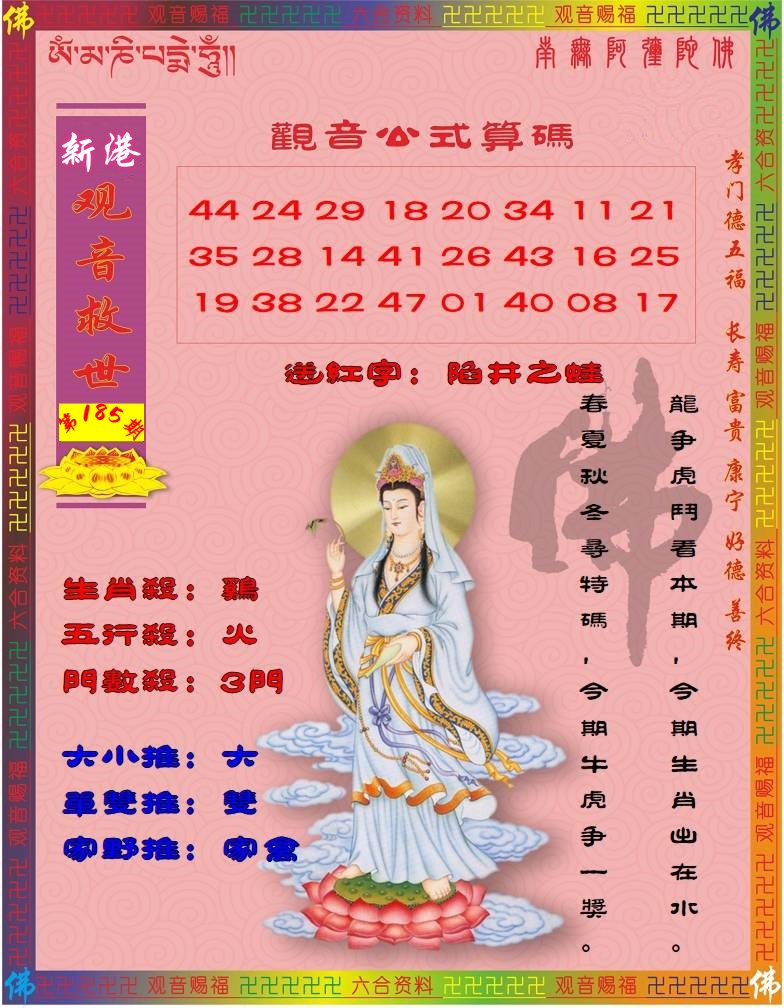 佛 卍卍卍卍卍 观音赐福 卍卍卍卍卍 六合资料 卍卍卍卍卍 观音赐福 卍卍卍卍卍 佛
南無阿彌陀佛
新港
观音救世
第185期
觀音公式算碼
44 24 29 18 20 34 11 21
35 28 14 41 26 43 16 25
19 38 22 47 01 40 08 17
送紅字：陷井之蛙
孝门德五福 长寿 富贵 康宁 好德 善终
龍争虎鬥看本期，今期生肖出在水。
春夏秋冬尋特碼，今期牛虎争一獎。
佛
生肖殺：鷄
五行殺：火
門數殺：3門
大小推：大
單雙推：雙
家野推：家禽
卍卍卍卍卍 观音赐福 卍卍卍卍卍 六合资料 卍卍卍卍卍 观音赐福 卍卍卍卍卍 六合资料 卍卍卍卍卍
卍卍卍卍卍 六合资料 卍卍卍卍卍 观音赐福 卍卍卍卍卍 六合资料 卍卍卍卍卍 观音赐福 卍卍卍卍卍
佛 卍卍卍卍卍 观音赐福 卍卍卍卍卍 六合资料 卍卍卍卍卍 观音赐福 卍卍卍卍卍 佛